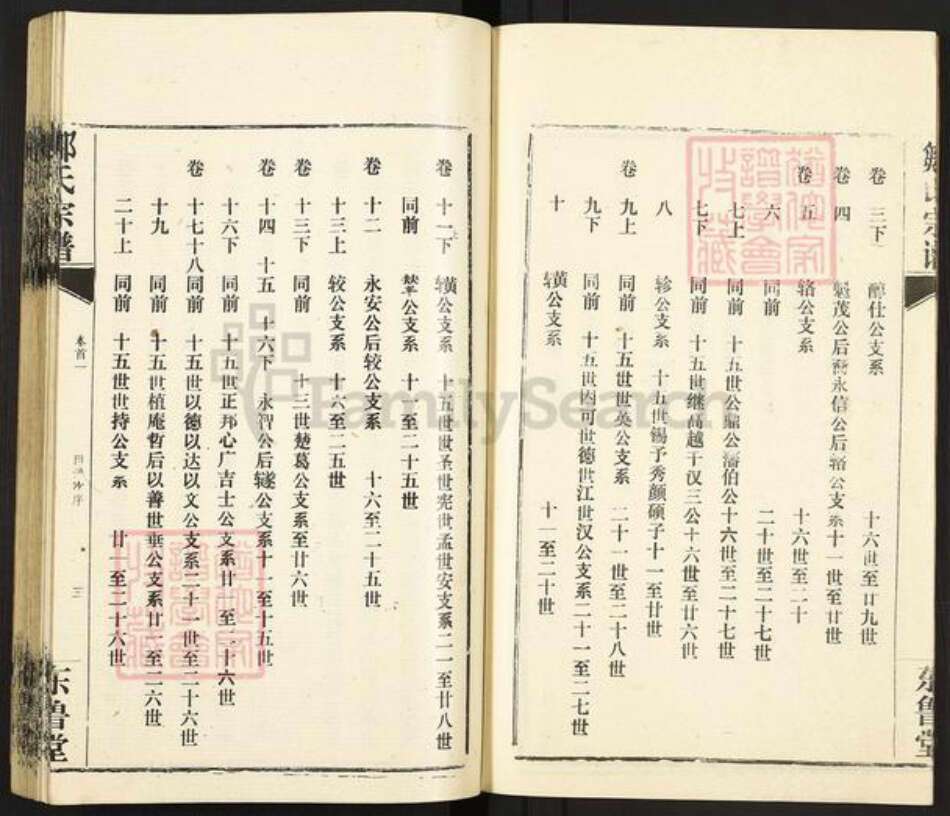 卷 三下 醇仕公支系 十六世至廿九世
卷 四 魁茂公后裔永信公后辂公支系十一世至廿世
卷 五 辂公支系 十六世至二十
六 同前 二十世至二十七世
七上 同前 十五世公鼎公藩伯公十六世至二十七世
七下 同前 十五世继高越千汉三公十六世至廿六世
八 轸公支系 十五世锡予秀颜硕子十一至廿世
卷 九上 同前 十五世世英公支系 二十一世至二十八世
九下 同前 十五世因可世德世江世汉公支系二十一至二七世
十 公支系 十一至二十世
卷 十一下 公支系 十五世世圣世宪世孟世安支系二一至廿八世
同前 公支系 十一至二十五世
卷 十二 永安公后较公支系 十六至二十五世
十三上 较公支系 十六至二五世
卷 十三下 同前 十三世楚葛公支系至廿六世
卷 十四 十五 十六下 永智公后公支系十一至十五世
十六下 同前 十五世正邦心广吉士公支系廿一至二十六世
卷 十七十八 同前 十五世以德以达以文公支系二十一世至二十六世
十九 同前 十五世植庵哲后以善世垂公支系廿一至二六世
二十上 同前 十五世世持公支系 廿一至二十六世
邹氏宗谱
卷首一
三
东鲁堂
東鲁堂
FamilySearch